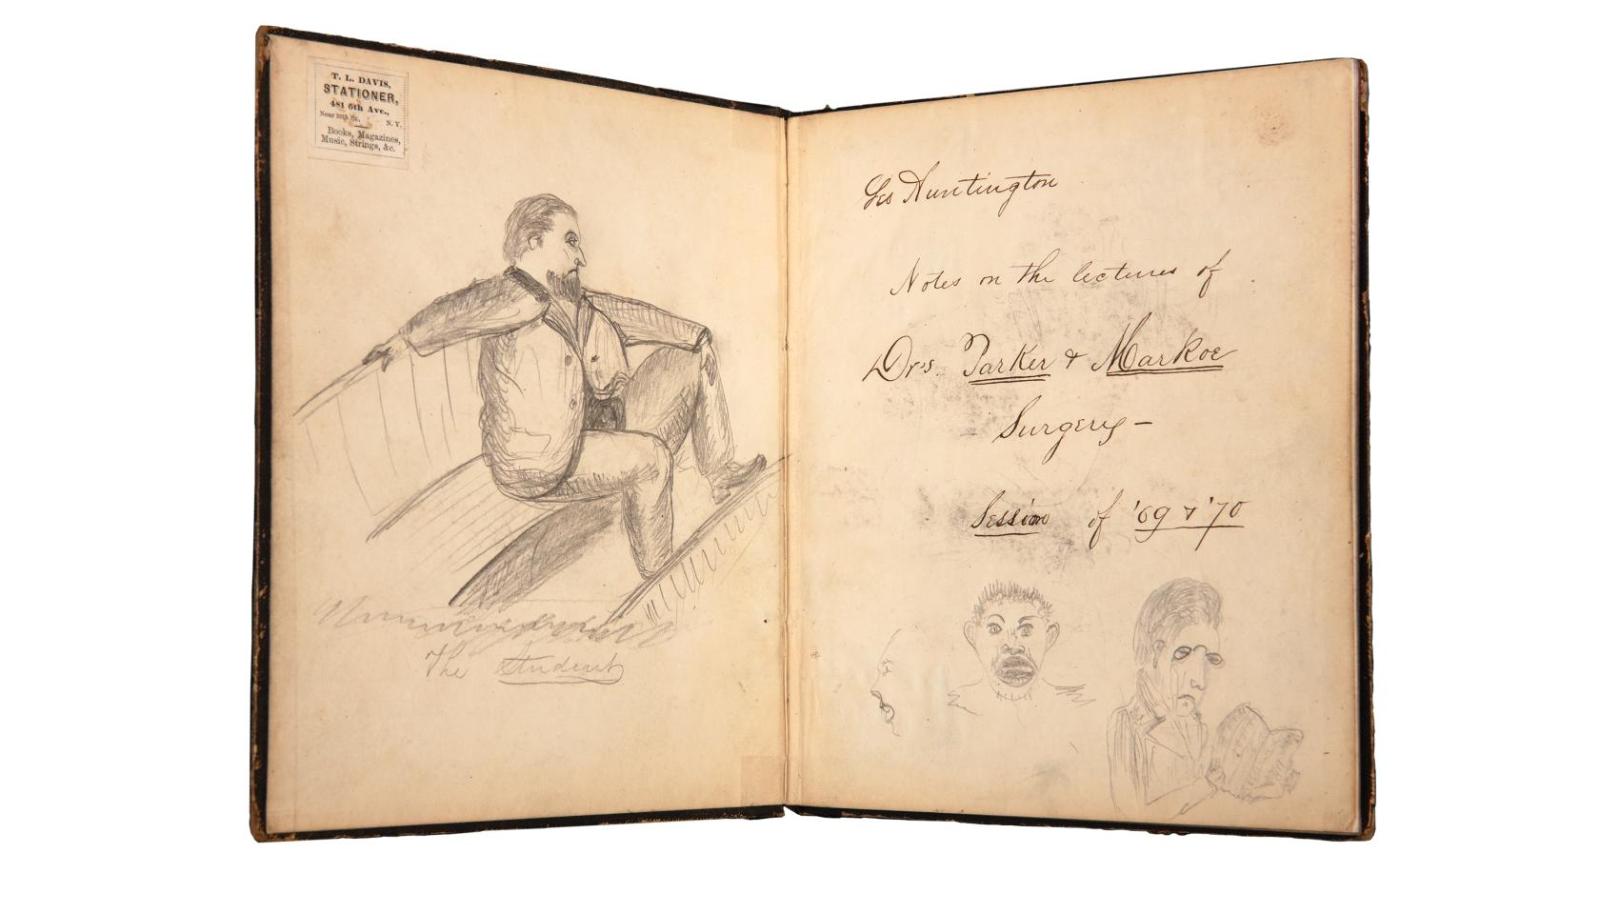 T. L. DAVIS,
STATIONER,
481 6th Ave.,
N. Y.
Books, Magazines,
Music, Strings, &c.
The Student
Geo Huntington
Notes on the lectures of
Drs. Parker & Markoe
Surgery –
Session of '69 & '70